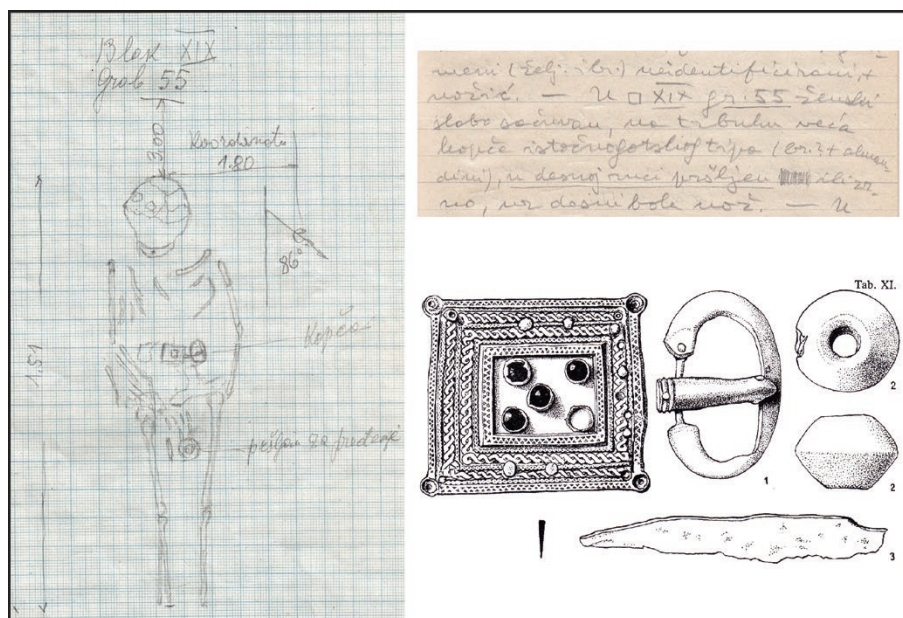 Blok XIX
Grob 55
3,00
Koordinate
1.80
86°
1,51
Kopča
pršljen za pređenje
meni (želj. i br.) neidentificirani +
nožić. — U □ XIX gr. 55 ženski
slabo sačuvan, na trbuhu veća
kopča istočnogotskog tipa (br. + alman
dini), u desnoj ruci pršljen ili zr
no, uz desni bok nož. — U
Tab. XI.
1
2
2
3